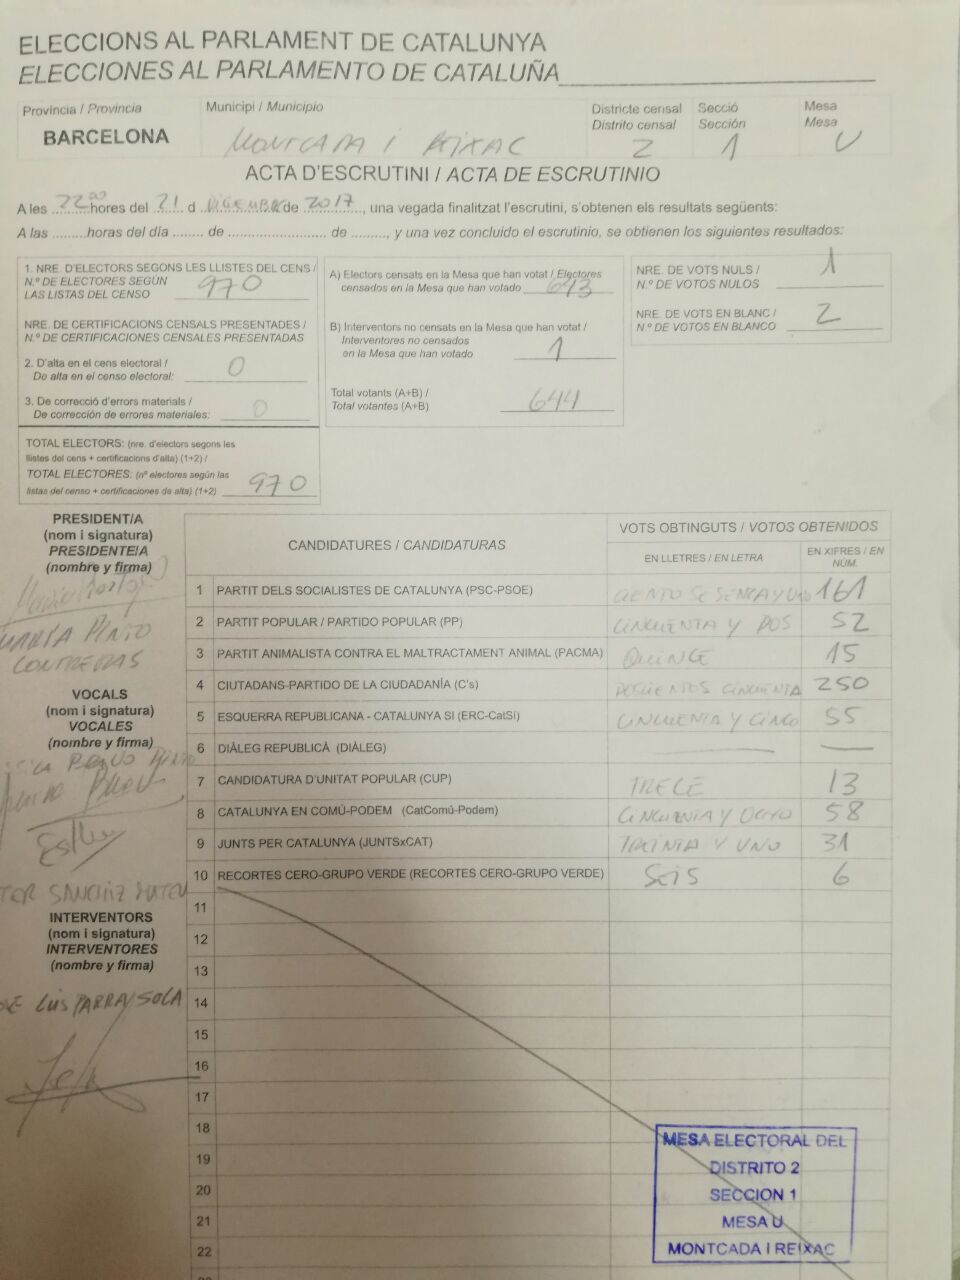 ELECCIONS AL PARLAMENT DE CATALUNYA
ELECCIONES AL PARLAMENTO DE CATALUÑA
Provincia / Provincia
BARCELONA
Municipi / Municipio
MONTCADA i REIXAC
Districte censal
Distrito censal
2
Secció
Sección
1
Mesa
Mesa
U
ACTA D'ESCRUTINI / ACTA DE ESCRUTINIO
A les 22:00 hores del 21 d DICEMBRE de 2017, una vegada finalitzat l'escrutini, s'obtenen els resultats següents:
A las .........horas del día ........ de ......................... de ........., y una vez concluido el escrutinio, se obtienen los siguientes resultados:
1. NRE. D'ELECTORS SEGONS LES LLISTES DEL CENS /
N.º DE ELECTORES SEGÚN
LAS LISTAS DEL CENSO 970
NRE. DE CERTIFICACIONS CENSALS PRESENTADES /
N.º DE CERTIFICACIONES CENSALES PRESENTADAS
2. D'alta en el cens electoral /
De alta en el censo electoral: 0
3. De correcció d'errors materials /
De corrección de errores materiales: 0
TOTAL ELECTORS: (nre. d'electors segons les
llistes del cens + certificacions d'alta) (1+2) /
TOTAL ELECTORES: (nº electores según las
listas del censo + certificaciones de alta) (1+2) 970
A) Electors censats en la Mesa que han votat / Electores
censados en la Mesa que han votado 643
B) Interventors no censats en la Mesa que han votat /
Interventores no censados
en la Mesa que han votado 1
Total votants (A+B) /
Total votantes (A+B) 644
NRE. DE VOTS NULS /
N.º DE VOTOS NULOS 1
NRE. DE VOTS EN BLANC /
N.º DE VOTOS EN BLANCO 2
PRESIDENT/A
(nom i signatura)
PRESIDENTE/A
(nombre y firma)
MARTA PINTO
CONTRERAS
VOCALS
(nom i signatura)
VOCALES
(nombre y firma)
Esther
SANCHIZ MATEU
INTERVENTORS
(nom i signatura)
INTERVENTORES
(nombre y firma)
LUIS PARRA SOLA
CANDIDATURES / CANDIDATURAS
VOTS OBTINGUTS / VOTOS OBTENIDOS
EN LLETRES / EN LETRA
EN XIFRES / EN NÚM.
1 PARTIT DELS SOCIALISTES DE CATALUNYA (PSC-PSOE) CIENTO SESENTA Y UNO 161
2 PARTIT POPULAR / PARTIDO POPULAR (PP) CINCUENTA Y DOS 52
3 PARTIT ANIMALISTA CONTRA EL MALTRACTAMENT ANIMAL (PACMA) QUINCE 15
4 CIUTADANS-PARTIDO DE LA CIUDADANÍA (C's) DOSCIENTOS CINCUENTA 250
5 ESQUERRA REPUBLICANA - CATALUNYA SI (ERC-CatSí) CINCUENTA Y CINCO 55
6 DIÀLEG REPUBLICÀ (DIÀLEG)
7 CANDIDATURA D'UNITAT POPULAR (CUP) TRECE 13
8 CATALUNYA EN COMÚ-PODEM (CatComú-Podem) CINCUENTA Y OCHO 58
9 JUNTS PER CATALUNYA (JUNTSxCAT) TREINTA Y UNO 31
10 RECORTES CERO-GRUPO VERDE (RECORTES CERO-GRUPO VERDE) SEIS 6
11
12
13
14
15
16
17
18
19
20
21
22
MESA ELECTORAL DEL
DISTRITO 2
SECCION 1
MESA U
MONTCADA I REIXAC